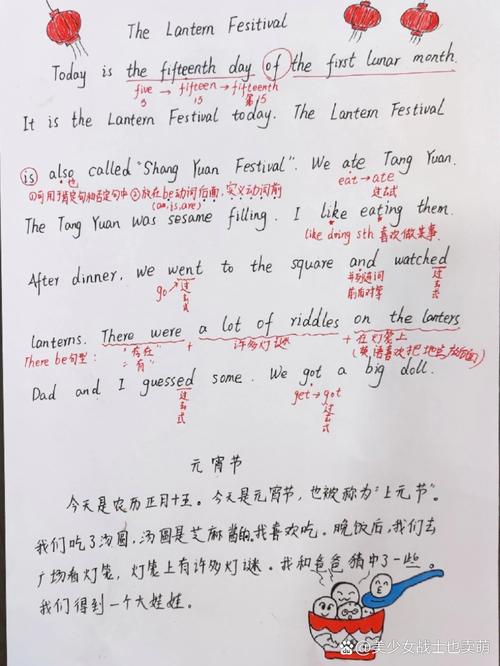 The Lantern Fesitival
Today is the fifteenth day of the first lunar month.
five → fifteen → fifteenth
5 15 第15
It is the Lantern Festival today. The Lantern Festival
is also called "Shang Yuan Festival". We ate Tang Yuan.
也 eat → ate
①可用于肯定句和否定句中 ②放在be动词后面,实义动词前 过去式
(am,is,are)
The Tang Yuan was sesame filling. I like eating them.
like doing sth 喜欢做某事
After dinner, we went to the square and watched
go 过去式 并列连词 过去式
前后对等
lanterns. There were a lot of riddles on the lanters
There be句型: "存在" + 许多灯谜 + 在灯笼上
="有" (英语喜欢把地点放后面)
Dad and I guessed some. We got a big doll.
过去式 get → got
过去式
元宵节
今天是农历正月十五。今天是元宵节,也被称为"上元节"。
我们吃了汤圆,汤圆是芝麻馅的,我喜欢吃。晚饭后,我们去
广场看灯笼,灯笼上有许多灯谜。我和爸爸猜中了一些。
我们得到一个大娃娃。
@美少女战士也卖萌